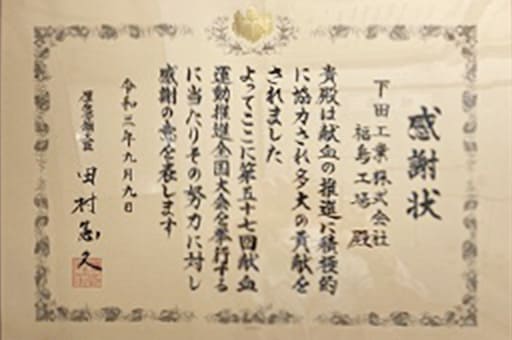 感謝状
下田工業株式会社
福島工場 殿
貴殿は献血の推進に積極的
に協力され多大の貢献を
されました
よってここに第五十七回献血
運動推進全国大会を挙行する
に当たりその努力に対し
感謝の意を表します
令和三年九月九日
厚生労働大臣
田村憲久